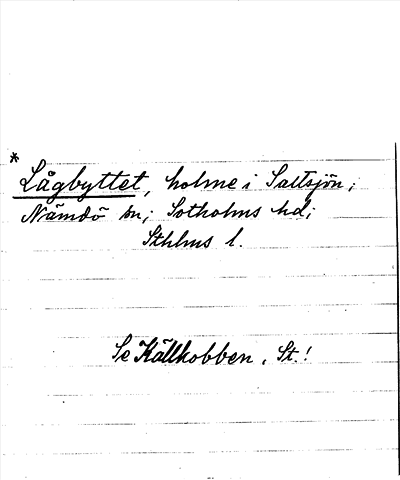 * Lågbyttet, holme i Saltsjön;
Nämdö sn; Sotholms hd;
Sthlms l.
Se Källkobben, St.!